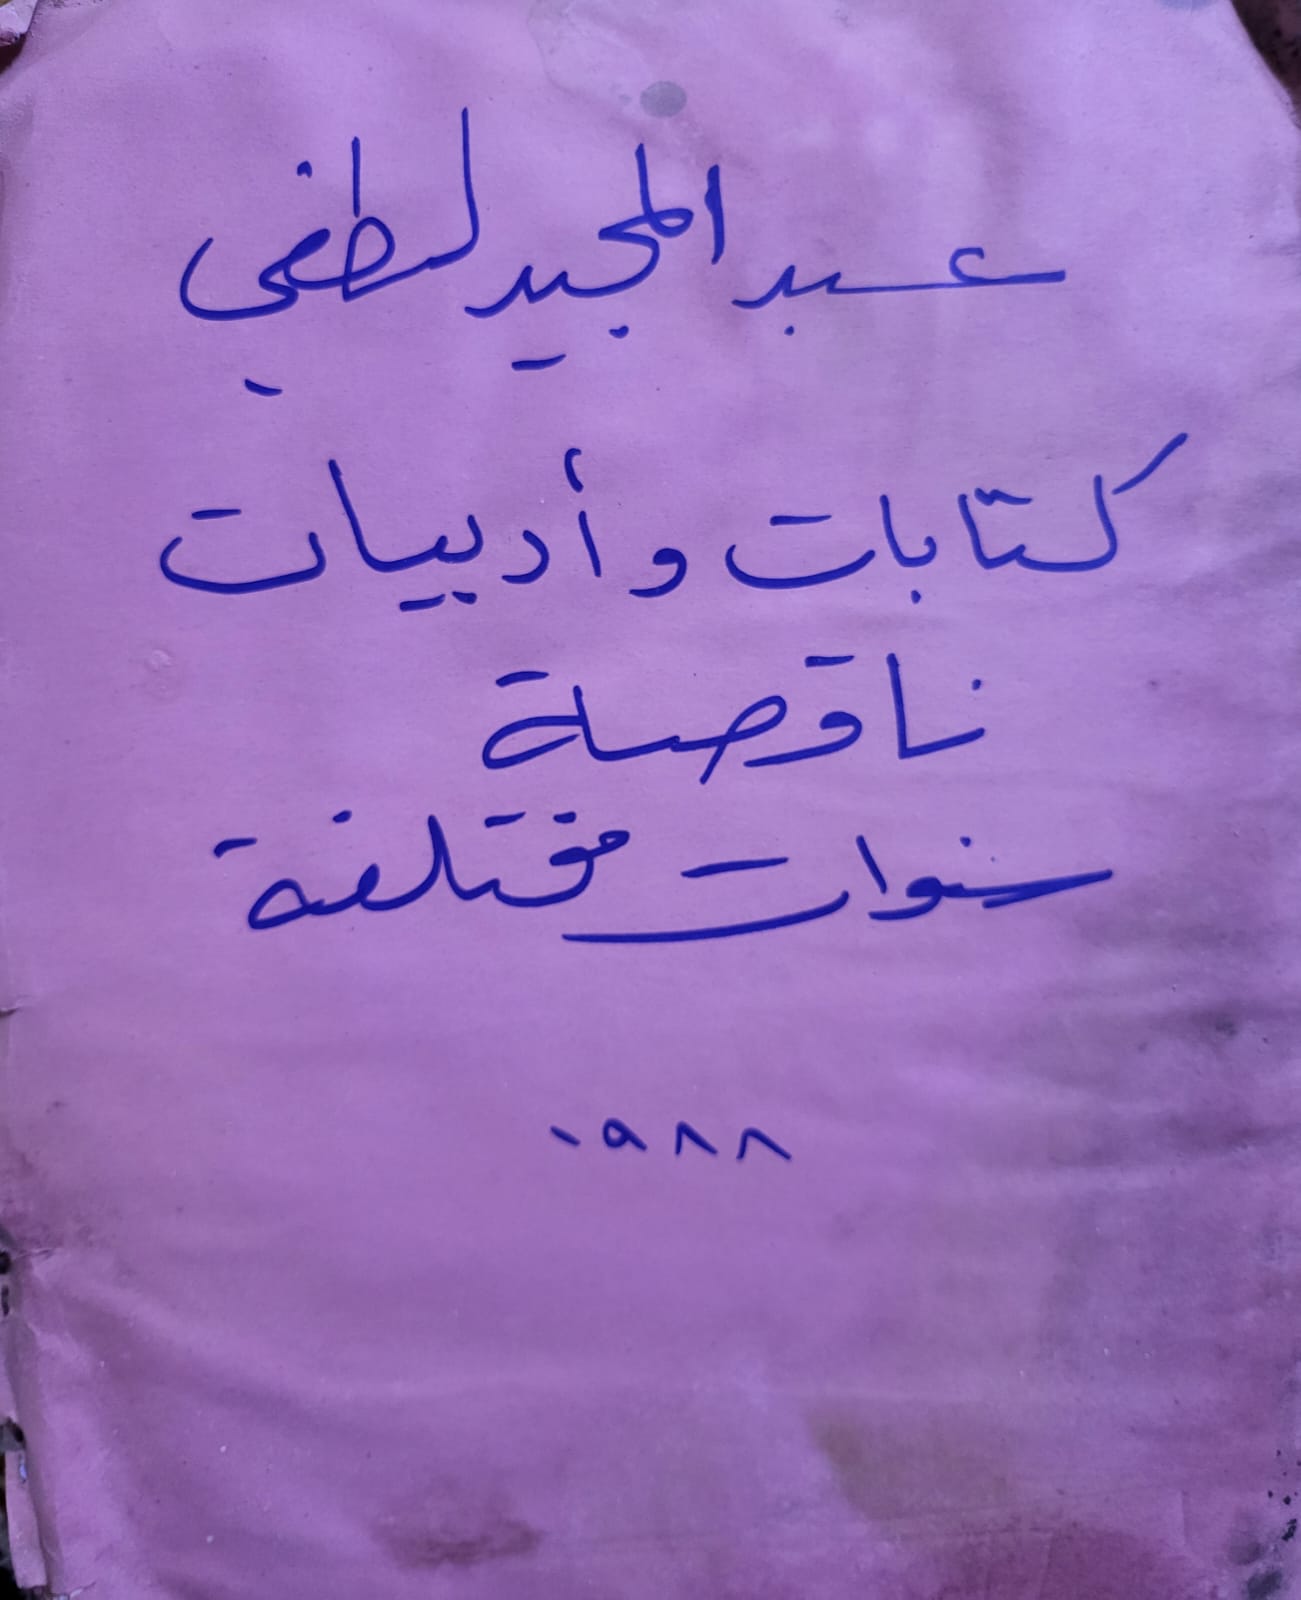 عبد المجيد لطفي
كتابات وأدبيات
ناقصة
سنوات مختلفة
٠٩٨٨